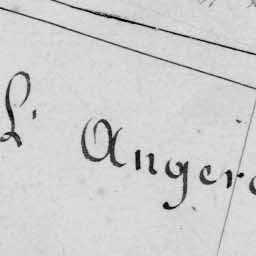 L' Angere